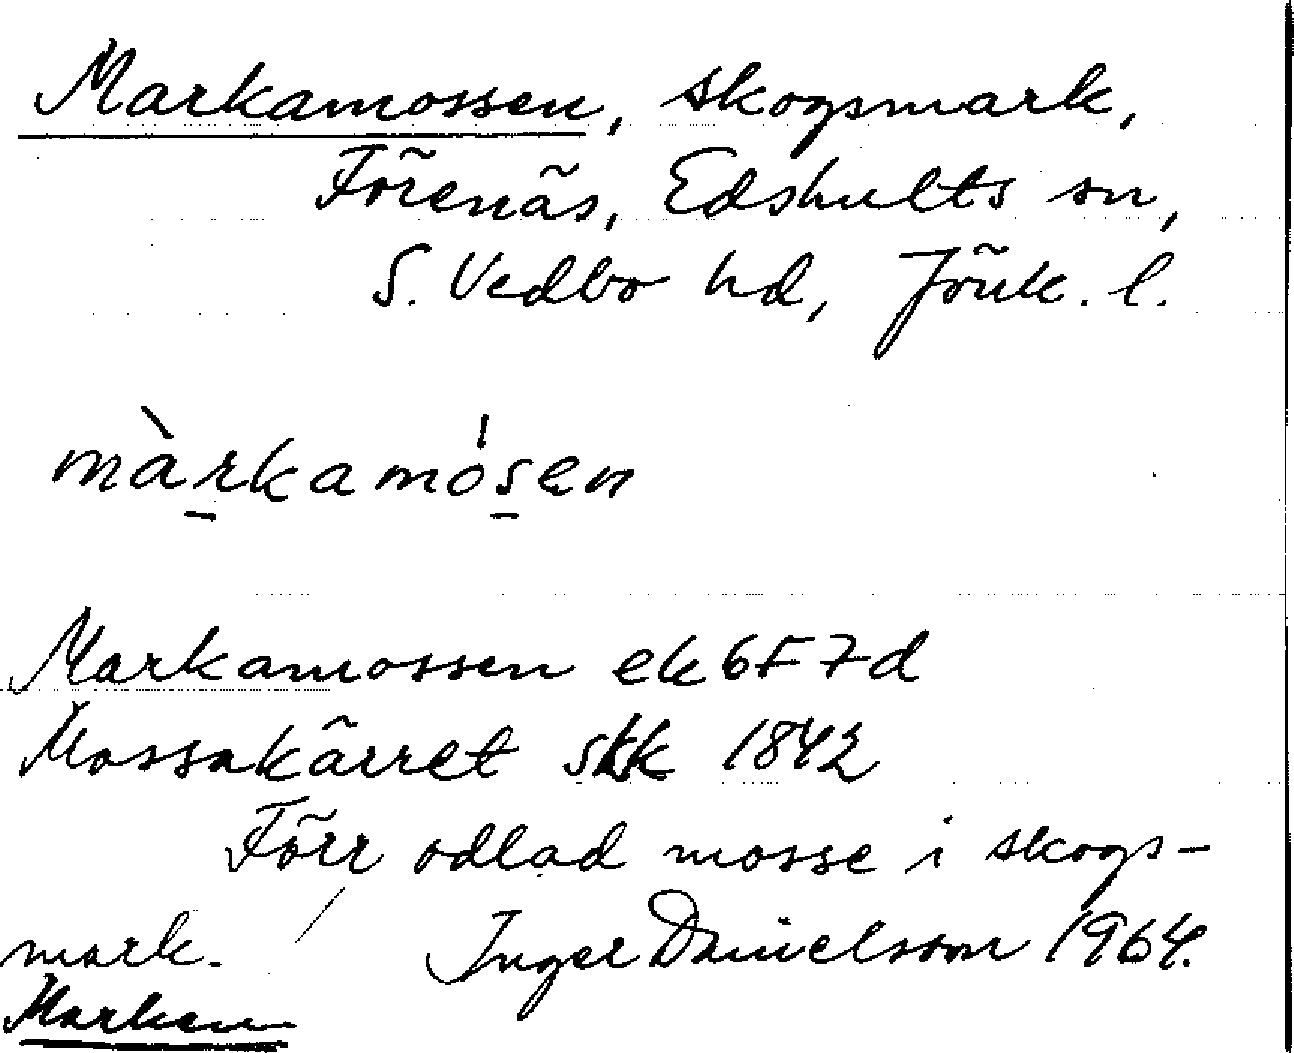 Markamossen, skogsmark,
Förenäs, Edshults sn,
S. Vedbo hd, Jönk. l.
màrkamósen
Markamossen ek 6F7d
Mossakärret skk 1842
Förr odlad mosse i skogs-
mark. / Inger Danielsson 1964.
Marken